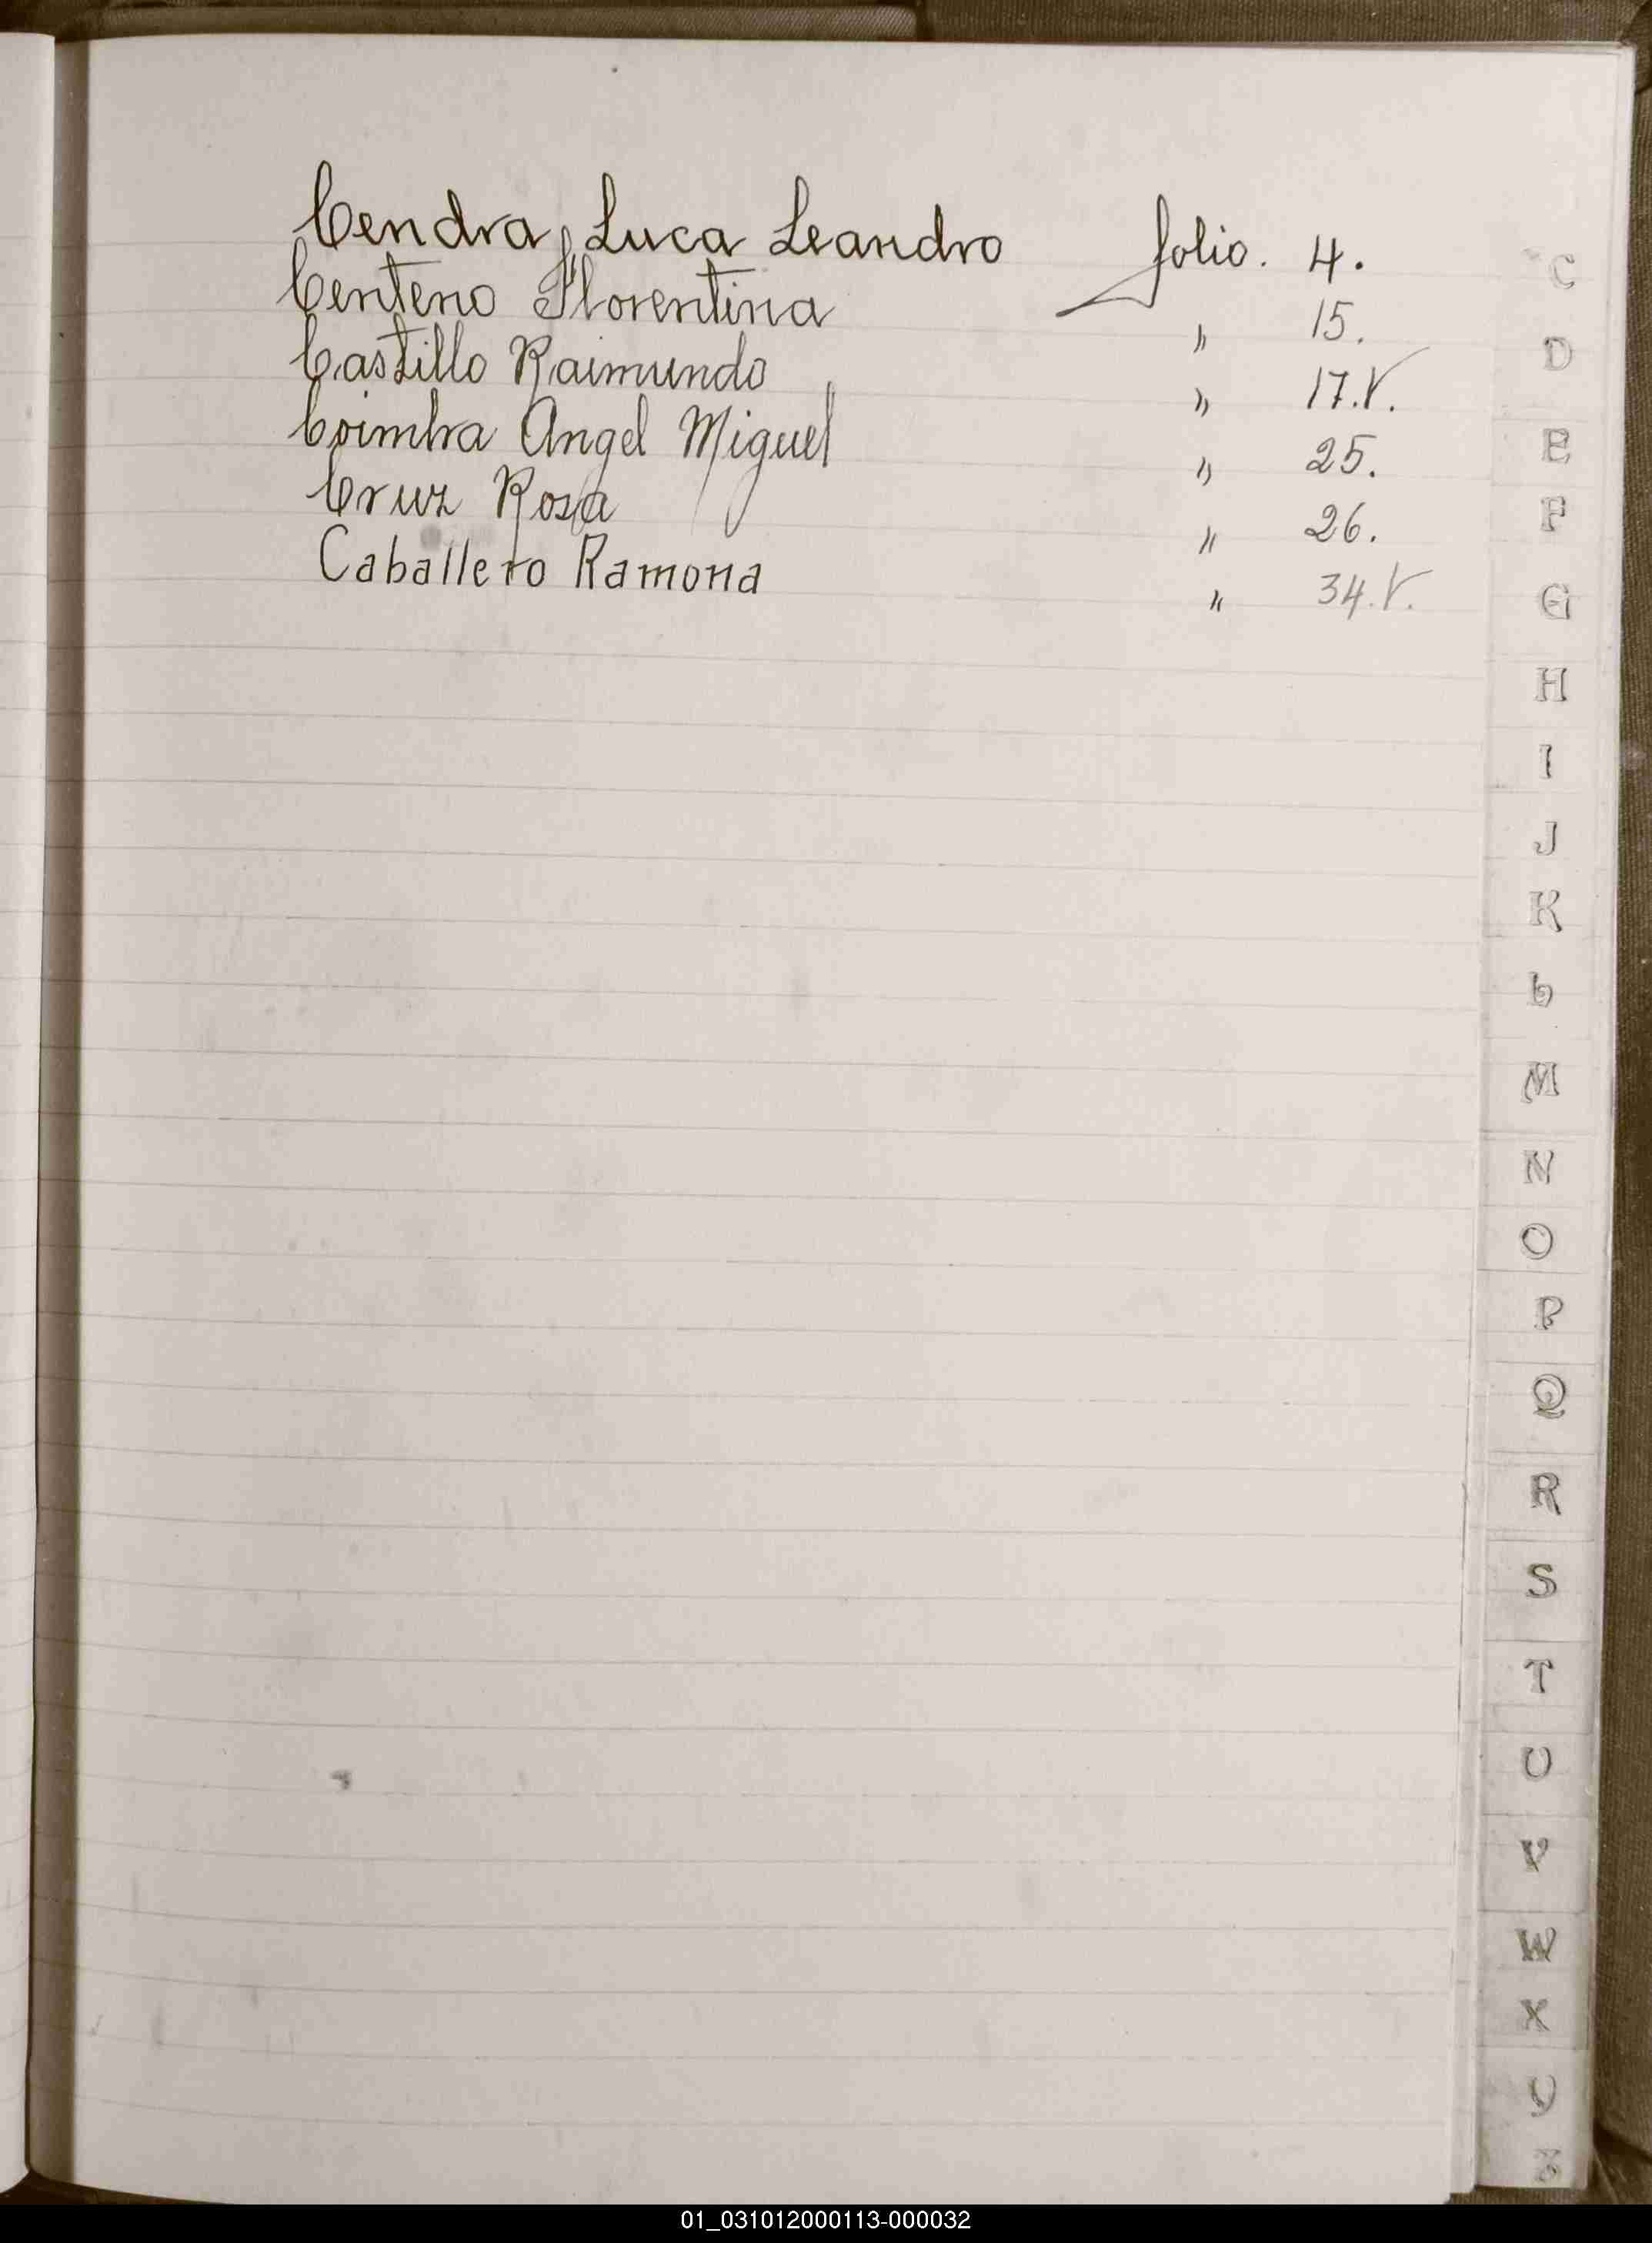 Cendra, Luca Leandro folio. 4.
Centeno Florentina " 15.
Castillo Raimundo " 17.V.
Coimbra Angel Miguel " 25.
Cruz Rosa " 26.
Caballero Ramona " 34.V.
C
D
E
F
G
H
I
J
K
L
M
N
O
P
Q
R
S
T
U
V
W
X
Y
Z
01_031012000113-000032